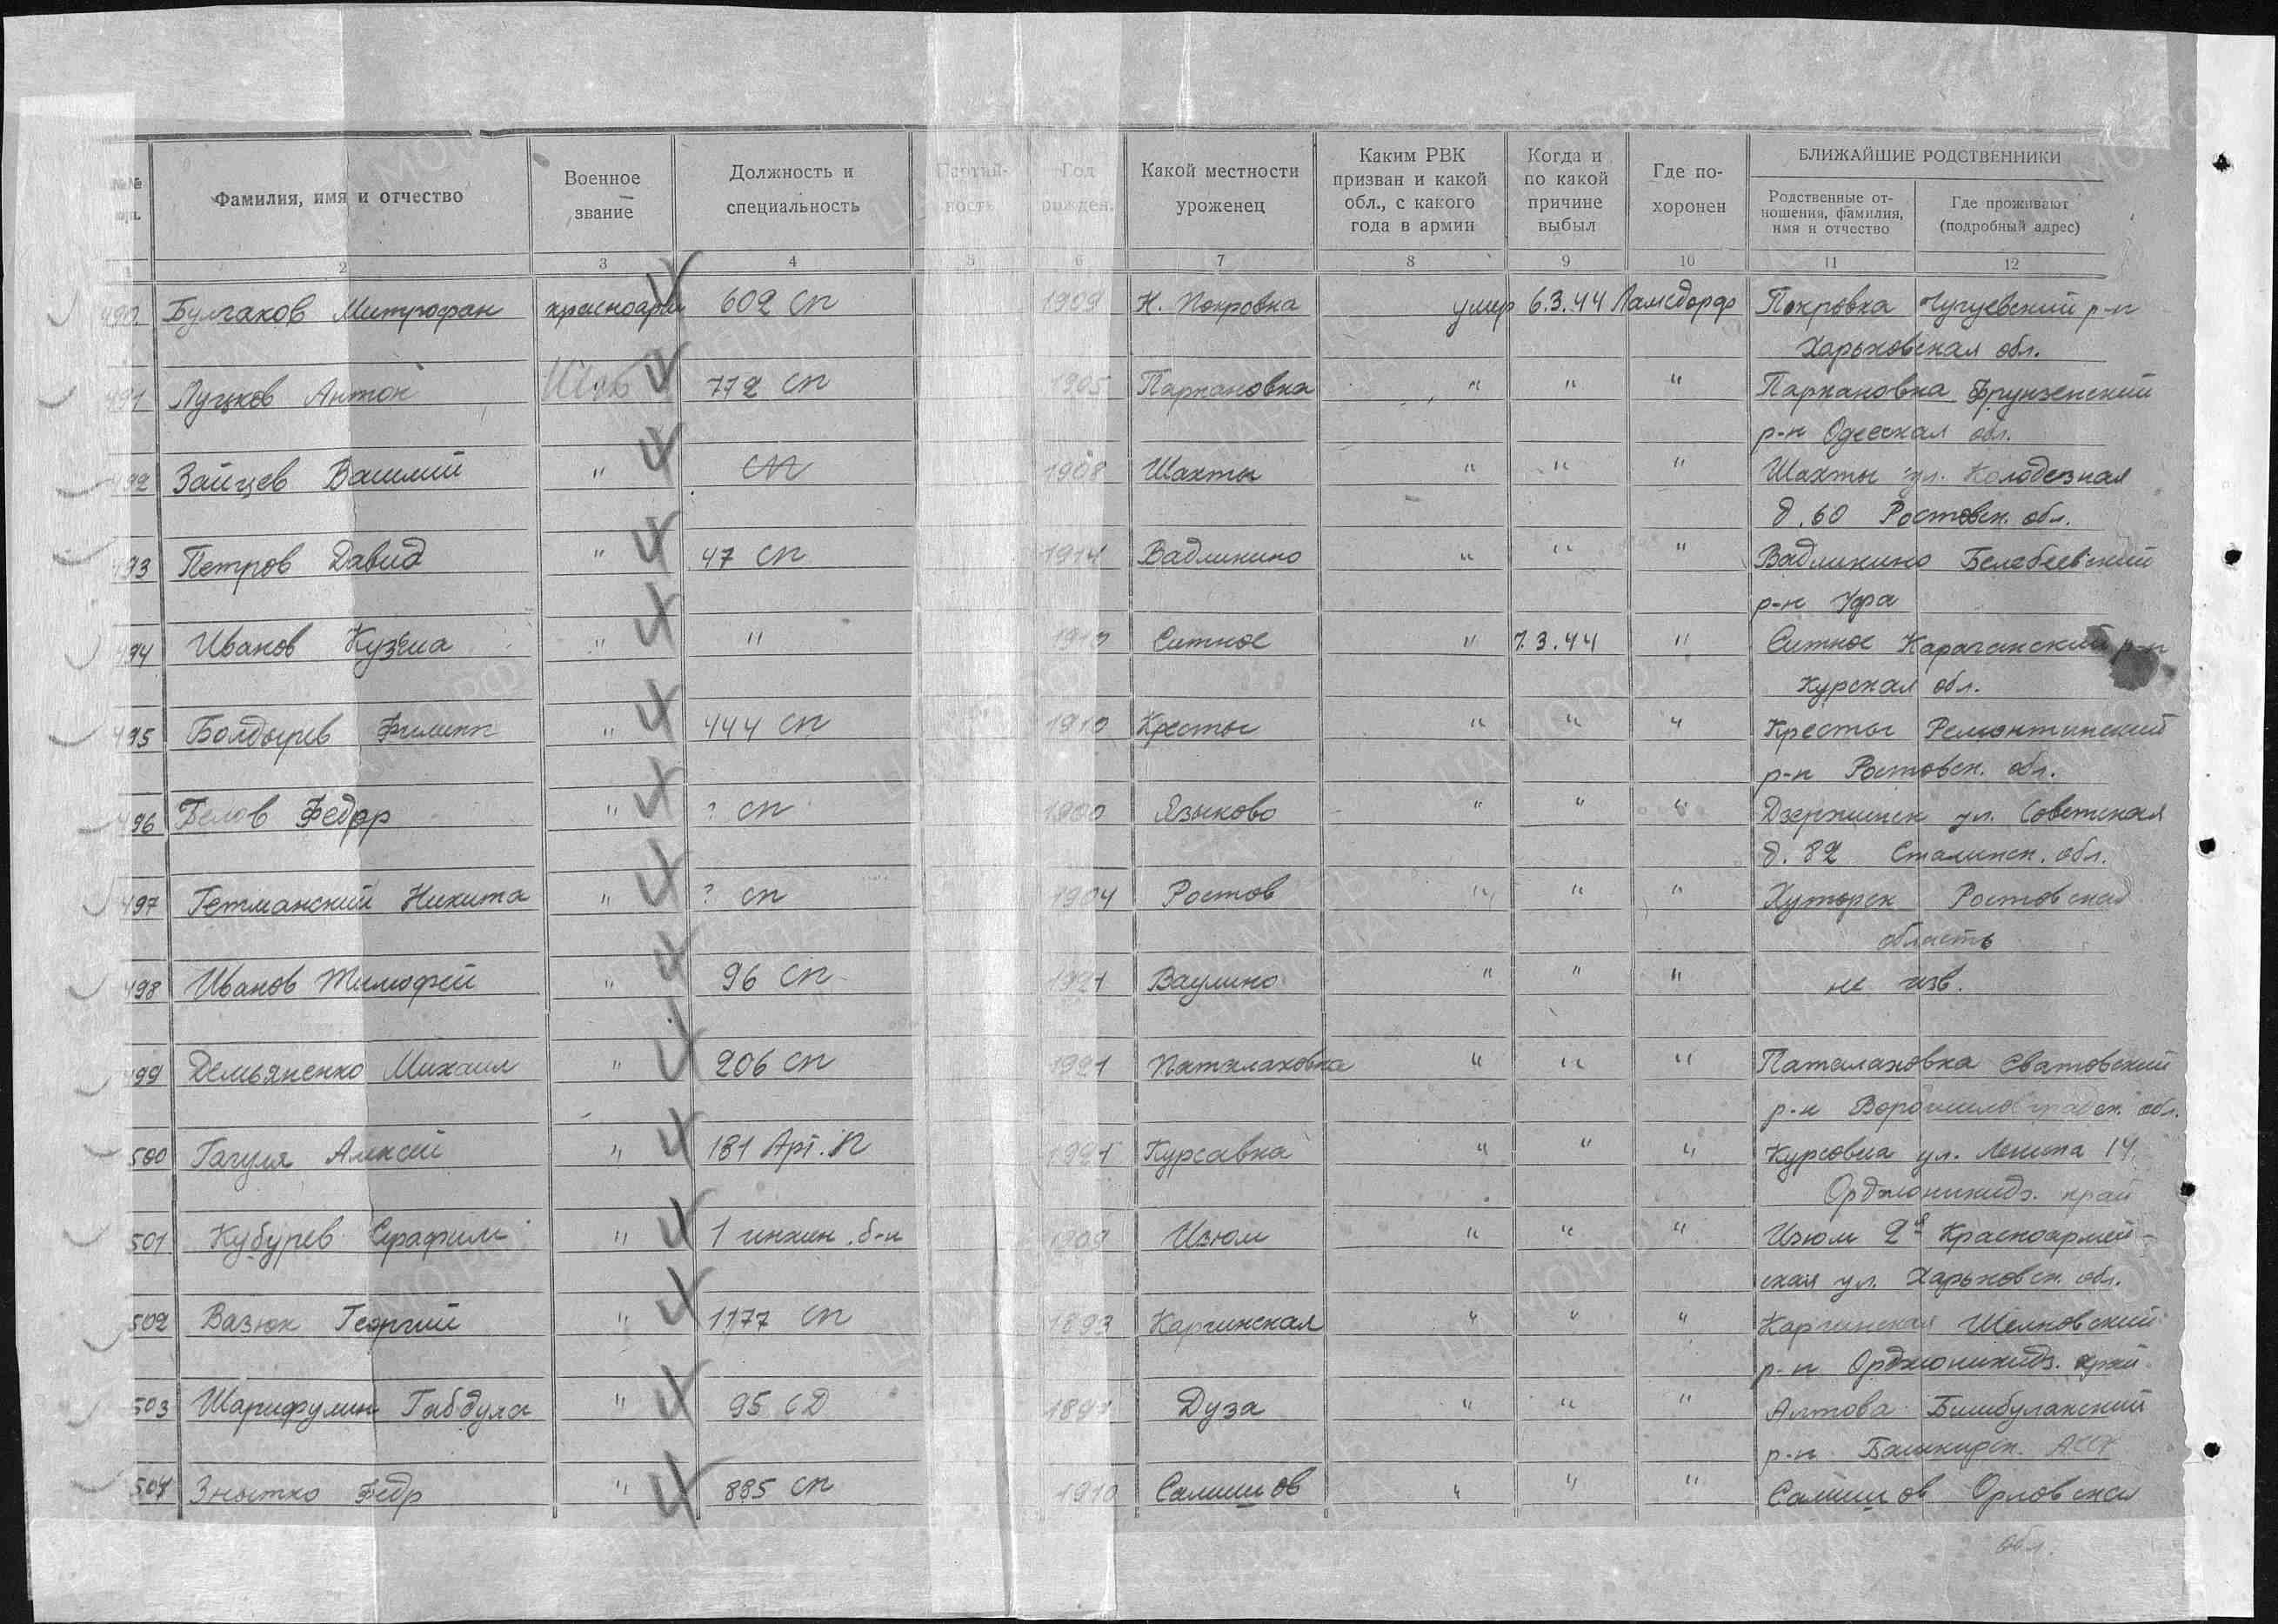 №№ п.п. Фамилия, имя и отчество Военное звание Должность и специальность Партий-ность Год рожден. Какой местности уроженец Каким РВК призван и какой обл., с какого года в армии Когда и по какой причине выбыл Где по-хоронен БЛИЖАЙШИЕ РОДСТВЕННИКИ
Родственные от-ношения, фамилия, имя и отчество Где проживают (подробный адрес)
1 2 3 4 5 6 7 8 9 10 11 12
490 Булгаков Митрофан красноарм 602 сп 1909 Н. Покровка умер 6.3.44 Ламсдорф Покровка Чугуевский р-н
Харьковская обл.
491 Луцков Антон " 772 сп 1905 Паркановка " " " Паркановка Фрунзенский
р-н Одесская обл.
492 Зайцев Василий " сп 1908 Шахты " " " Шахты ул. Колодезная
д. 60 Ростовск. обл.
493 Петров Давид " 47 сп 1914 Вадликино " " " Вадликино Белебеевский
р-н Уфа
494 Иванов Кузьма " " Ситное " 7.3.44 " Ситное р-н
Курская обл.
495 Болдырев Филипп " 444 сп 1910 Кресты " " " Кресты Ремонтинский
р-н Ростовск. обл.
496 Белов Федор " ? сп 1900 Языково " " " Дзержинск ул. Советская
д. 82 Сталинск. обл.
497 Гетманский Никита " ? сп 1904 Ростов " " " Хуторск Ростовская
область
498 Иванов Тимофей " 96 сп 1921 Ваулино " " " не изв.
499 Демьяненко Михаил " 206 сп 1921 Паталаховка " " " Паталаховка Сватовский
р-н Ворошиловградск. обл.
500 Гагуля Алексей " 181 Арт. П 1921 Курсавка " " " Курсовка ул. Ленина 14
Орджоникидз. край
501 Кубурев Серафим " 1 инжен. б-н 1909 Изюм " " " Изюм 2я Красноармей-
ская ул. Харьковск. обл.
502 Вазюк Георгий " 1177 сп 1893 Каргинская " " " Каргинская Шелковский
р-н Орджоникидз. край
503 Шарифулин Габдула " 95 СД Дуза " " " Алтова Бишбулакский
р-н Башкирск. АССР
504 Знытко Федр " 885 сп 1910 Салишов " " " Салишов Орловская
обл.